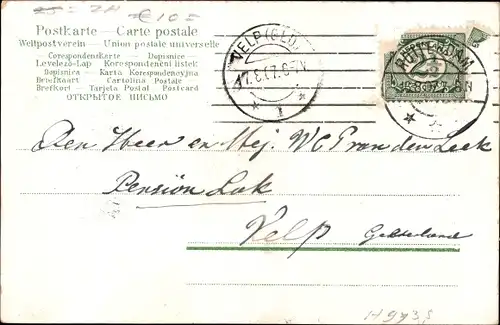 €10=
Postkarte - Carte postale
Weltpostverein - Union postale universelle
Correspondenzkarte - Dopisnice
Levelező-Lap Korespondenční listek
Dopisnica - Karta Korespondencyjna
Brevkaart - Cartolina Postale
Brefkort - Tarjeta Postal Postcard
ОТКРЫТОЕ ПИСЬМО
VELP (GLD.)
ROTTERDAM
Den Heer en Mej. W C P van den Leek
Pension Luk
Velp Gelderland
H9935